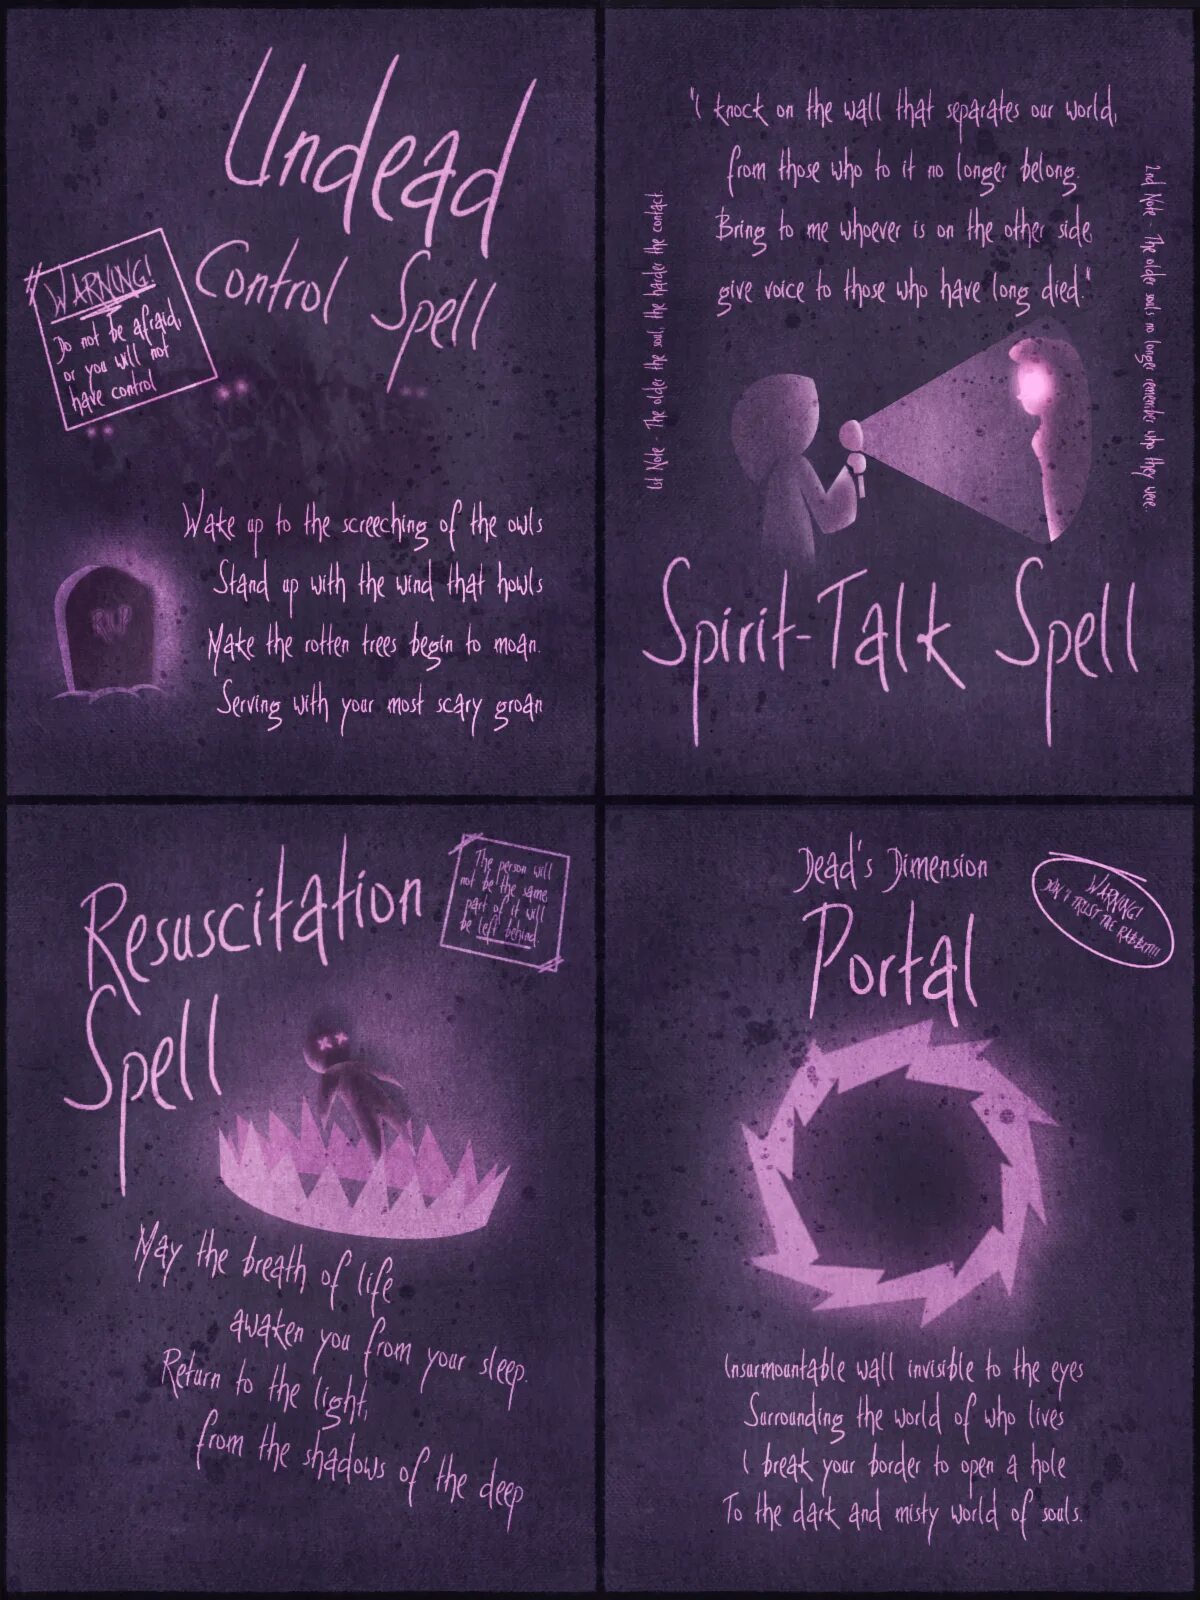 Undead
Control Spell
WARNING!
Do not be afraid,
or you will not
have control
RIP
Wake up to the screeching of the owls
Stand up with the wind that howls
Make the rotten trees begin to moan.
Serving with your most scary groan
"I knock on the wall that separates our world,
from those who to it no longer belong.
Bring to me whoever is on the other side,
give voice to those who have long died."
1st Note - The older the soul, the harder the contact.
2nd Note - The older souls no longer remember who they were.
Spirit-Talk Spell
Resuscitation
Spell
The person will
not be the same,
part of it will
be left behind.
May the breath of life
awaken you from your sleep.
Return to the light,
from the shadows of the deep
Dead's Dimension
Portal
WARNING!
DON'T TRUST THE RABBIT!!!
Insurmountable wall invisible to the eyes
Surrounding the world of who lives
I break your border to open a hole
To the dark and misty world of souls.